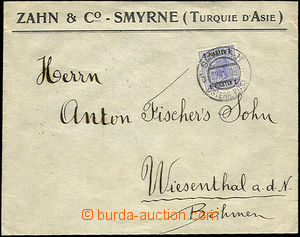 ZAHN & Cº - SMYRNE (TURQUIE D'ASIE)
1 PIASTER 1
Herrn
Anton Fischer's Sohn
Wiesenthal a.d.N.
Böhmen
© burda-auction.com